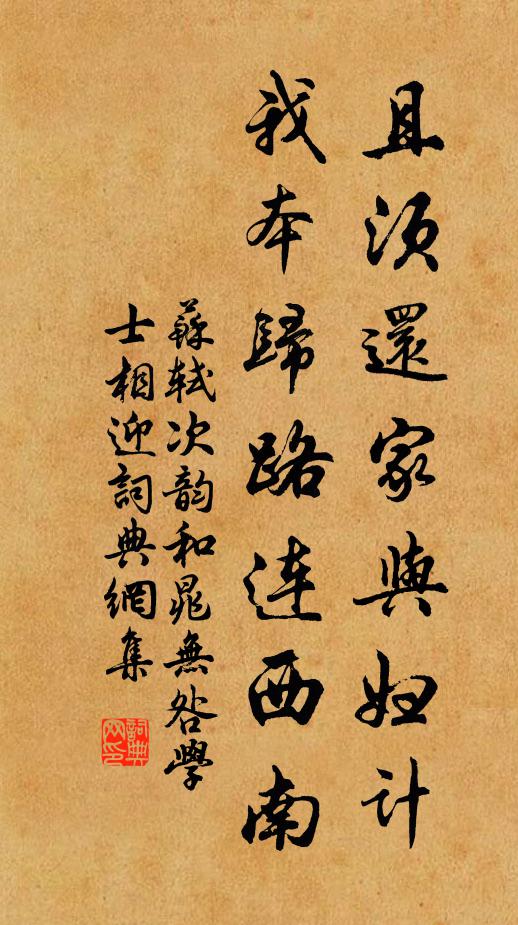 且須還家與婦計
我本歸路連西南
蘇軾次韵和晁無咎學
士相迎詞典網集
詞典
网印